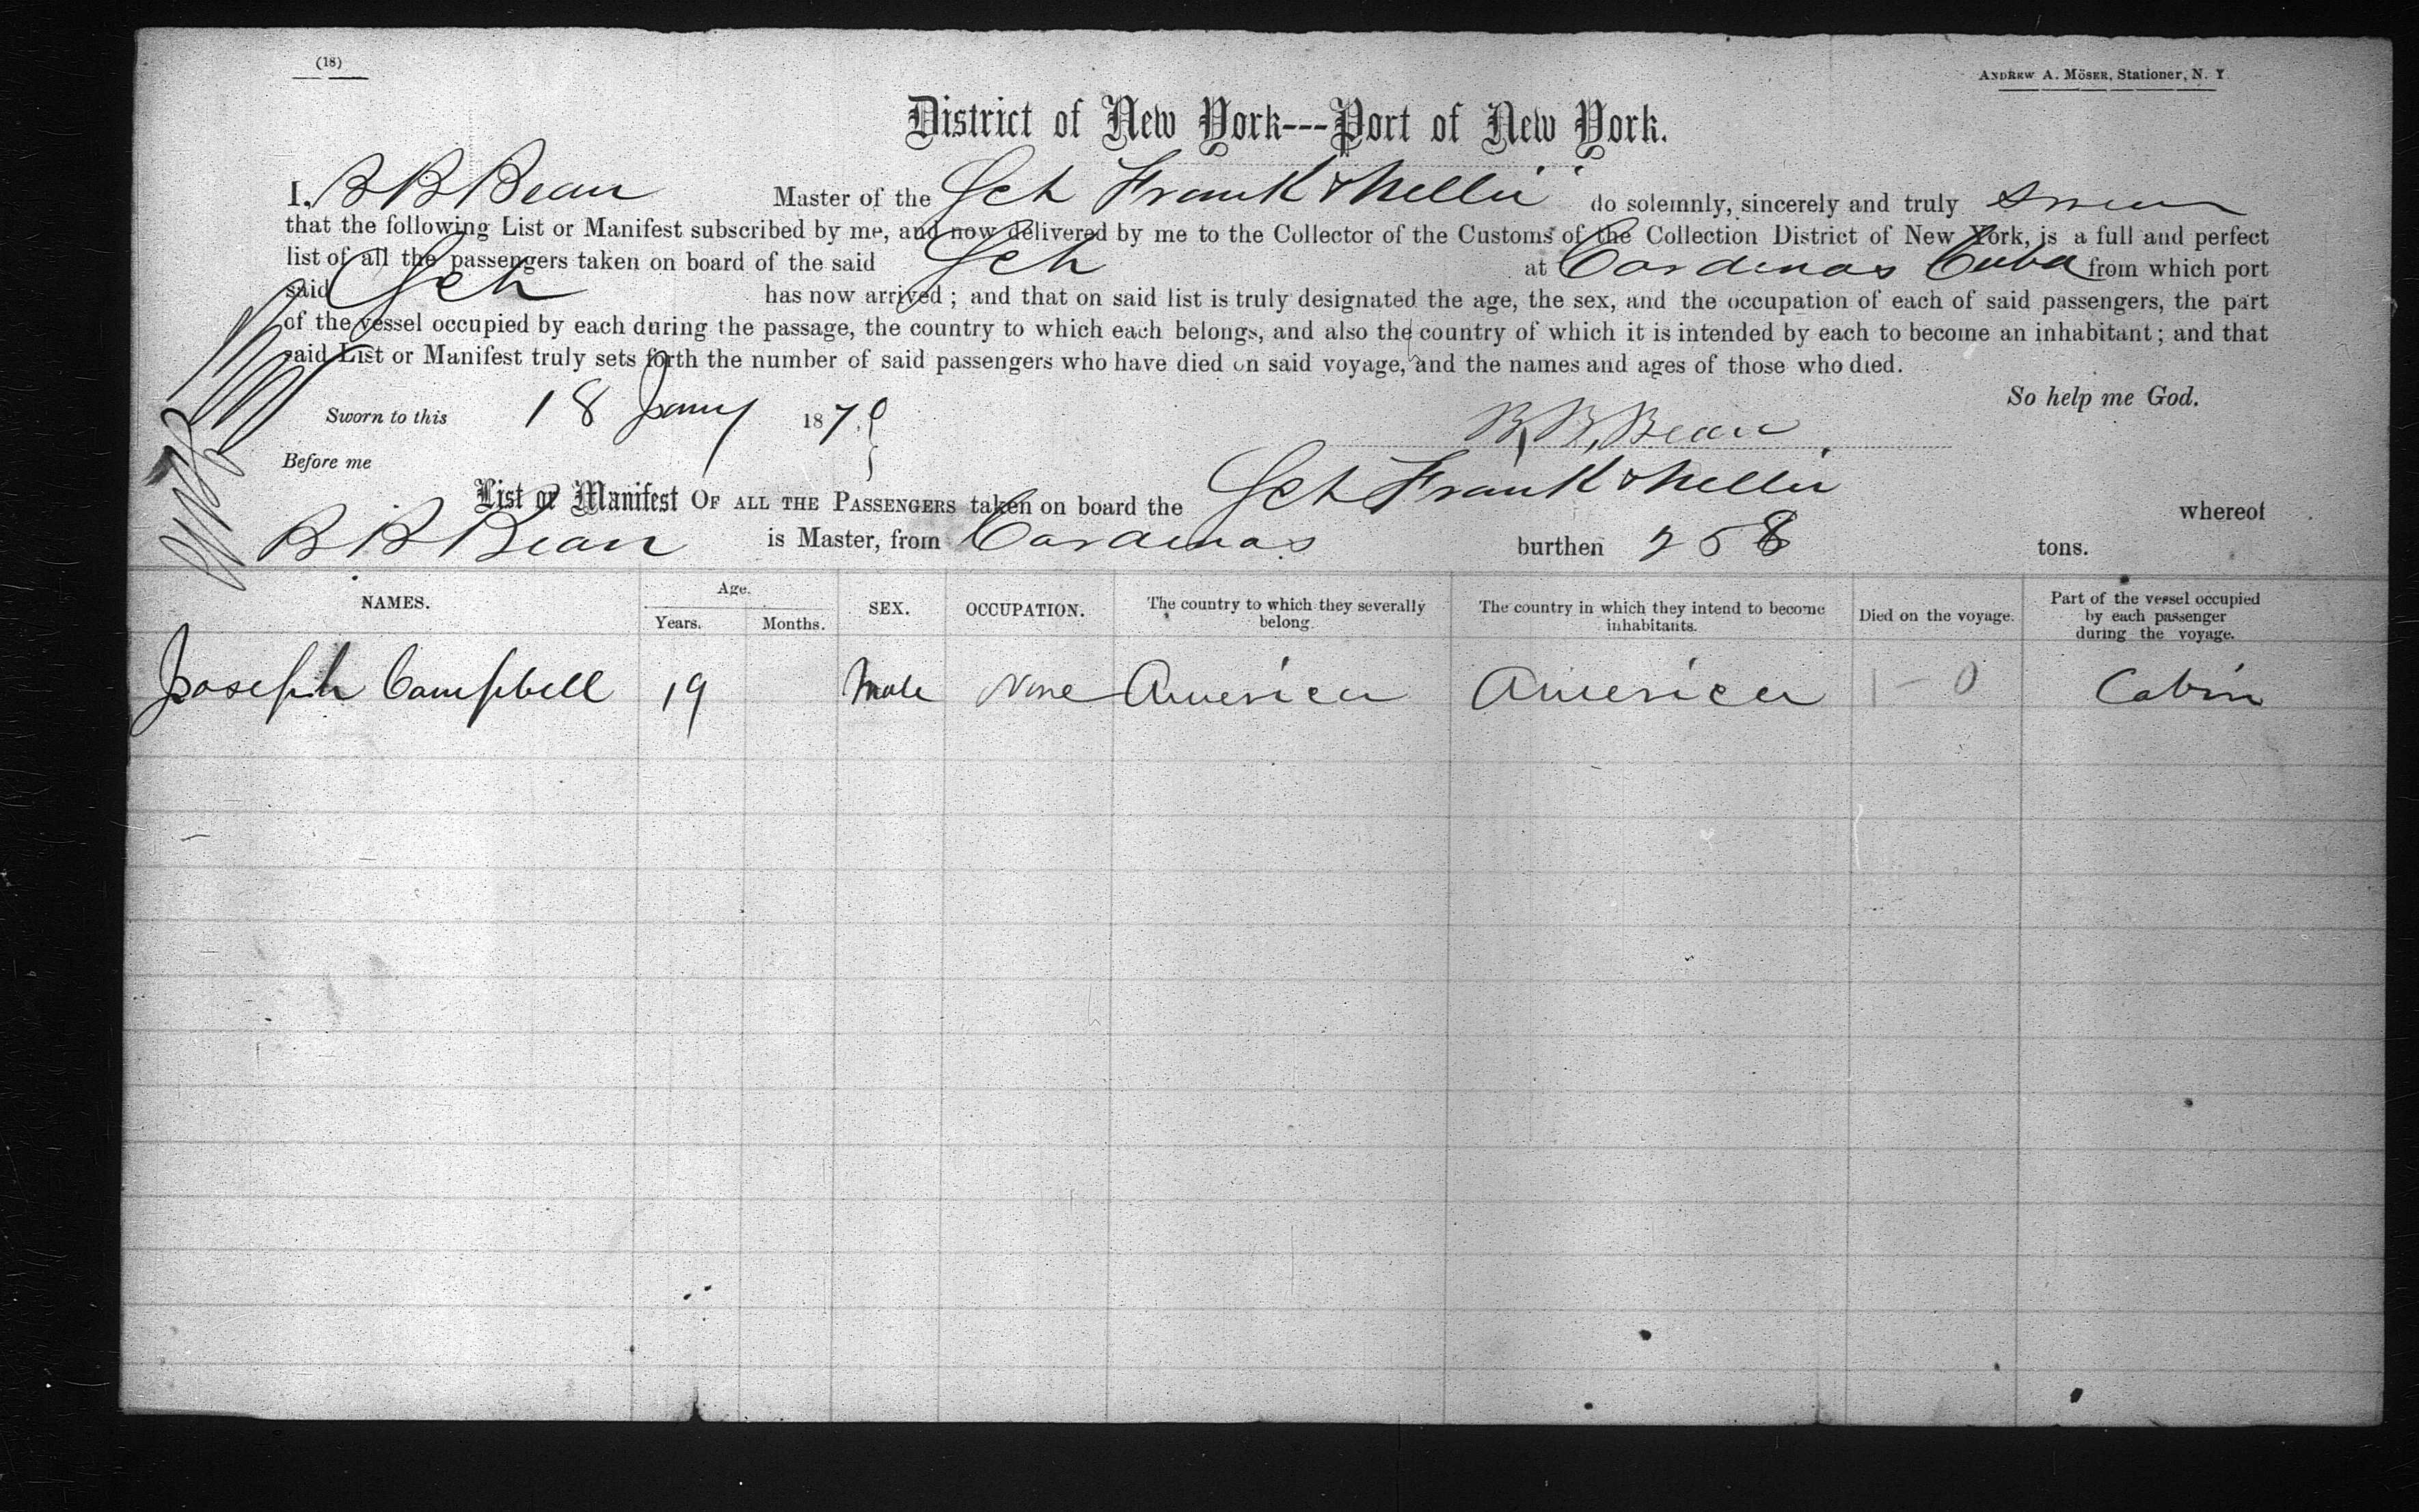 (18)
ANDREW A. MÖSER, Stationer, N. Y.
District of New York---Port of New York.
I, B B Bean Master of the Sch Frank & Nellie do solemnly, sincerely and truly swear
that the following List or Manifest subscribed by me, and now delivered by me to the Collector of the Customs of the Collection District of New York, is a full and perfect
list of all the passengers taken on board of the said Sch at Cardenas Cuba from which port
said Sch has now arrived ; and that on said list is truly designated the age, the sex, and the occupation of each of said passengers, the part
of the vessel occupied by each during the passage, the country to which each belongs, and also the country of which it is intended by each to become an inhabitant ; and that
said List or Manifest truly sets forth the number of said passengers who have died on said voyage, and the names and ages of those who died.
So help me God.
Sworn to this 18 Jany 187
B. B. Bean
Before me
List or Manifest OF ALL THE PASSENGERS taken on board the Sch Frank & Nellie whereof
B B Bean is Master, from Cardenas burthen 258 tons.
NAMES. Age. Years. Months. SEX. OCCUPATION. The country to which they severally belong. The country in which they intend to become inhabitants. Died on the voyage. Part of the vessel occupied by each passenger during the voyage.
Joseph Campbell 19 Male None America America 1-0 Cabin